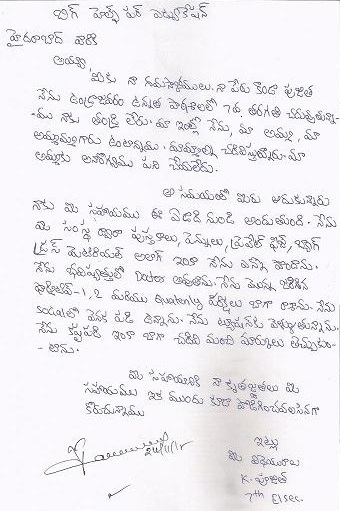 బిగ్ హెల్ప్ ఫర్ ఎడ్యుకేషన్
హైదరాబాద్ వారికి
అయ్యా,
మీకు నా నమస్కారములు. నా పేరు కొండా పూజిత
నేను ఉండ్రాజవరం ఉన్నత పాఠశాలలో 7వ తరగతి చదువుతున్నా
-ను నాకు తండ్రి లేరు. మా ఇంట్లో నేను, మా అమ్మ, మా
అమ్మమ్మగారు ఉంటాము. మామ్మగారు చదివిస్తున్నారు. మా
అమ్మకు అనారోగ్యము పని చేయలేరు.
ఆ సమయంలో మీరు ఆదుకున్నారు
నాకు మీ సహాయము ఈ ఏడాది నుండి అందుతుంది. నేను
మీ సంస్థ ద్వారా పుస్తకాలు, పెన్నులు, ప్రైవేట్ ఫీజు, బ్యాగ్
డ్రస్ మెటీరియల్ అలాగే ఇంకా నేను ఎన్నో పొందాను.
నేను భవిష్యత్తులో Doctor అవుతాను. నేను మొన్న జరిగిన
-1, 2 మరియు Quaterly పరీక్షలు బాగా రాశాను. నేను
social లో వెనక పడి ఉన్నాను. నేను ట్యూషన్‌కు వెళ్ళుతున్నాను.
నేను కష్టపడి ఇంకా బాగా చదివి మంచి మార్కులు తెచ్చుకుం-
-టాను.
మీ సహాయానికి నా కృతజ్ఞతలు మీ
సహాయము ఇక ముందు కూడా కొనసాగించవలసినదిగా
కోరుచున్నాము
ఇట్లు
మీ విధేయురాలు
K. పూజిత
7th El sec.